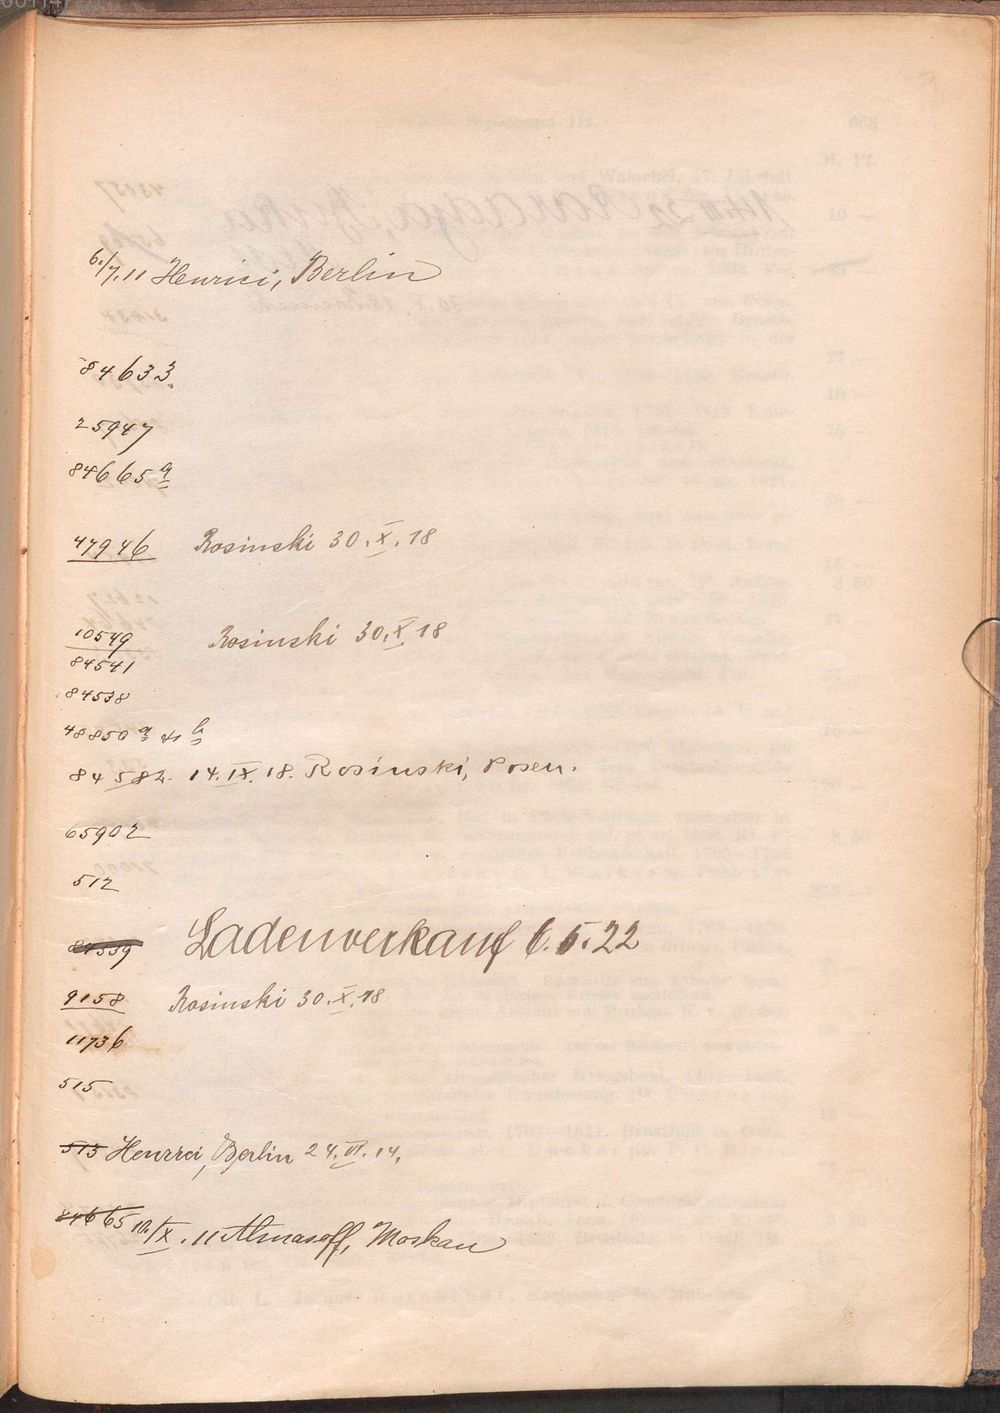 6./7.11 Henrici, Berlin
84633.
25947
84665 a
47946 Rosinski 30.X.18
10549 Rosinski 30.X.18
84541
84538
48850 a & b
84582. 14.IX.18. Rosinski, Posen.
65902
512
84539 Ladenverkauf 6.5.22
9158 Rosinski 30.X.18
11736
515
513 Henrici, Berlin 24.VI.14.
84665 10./X.11 Almasoff, Moskau